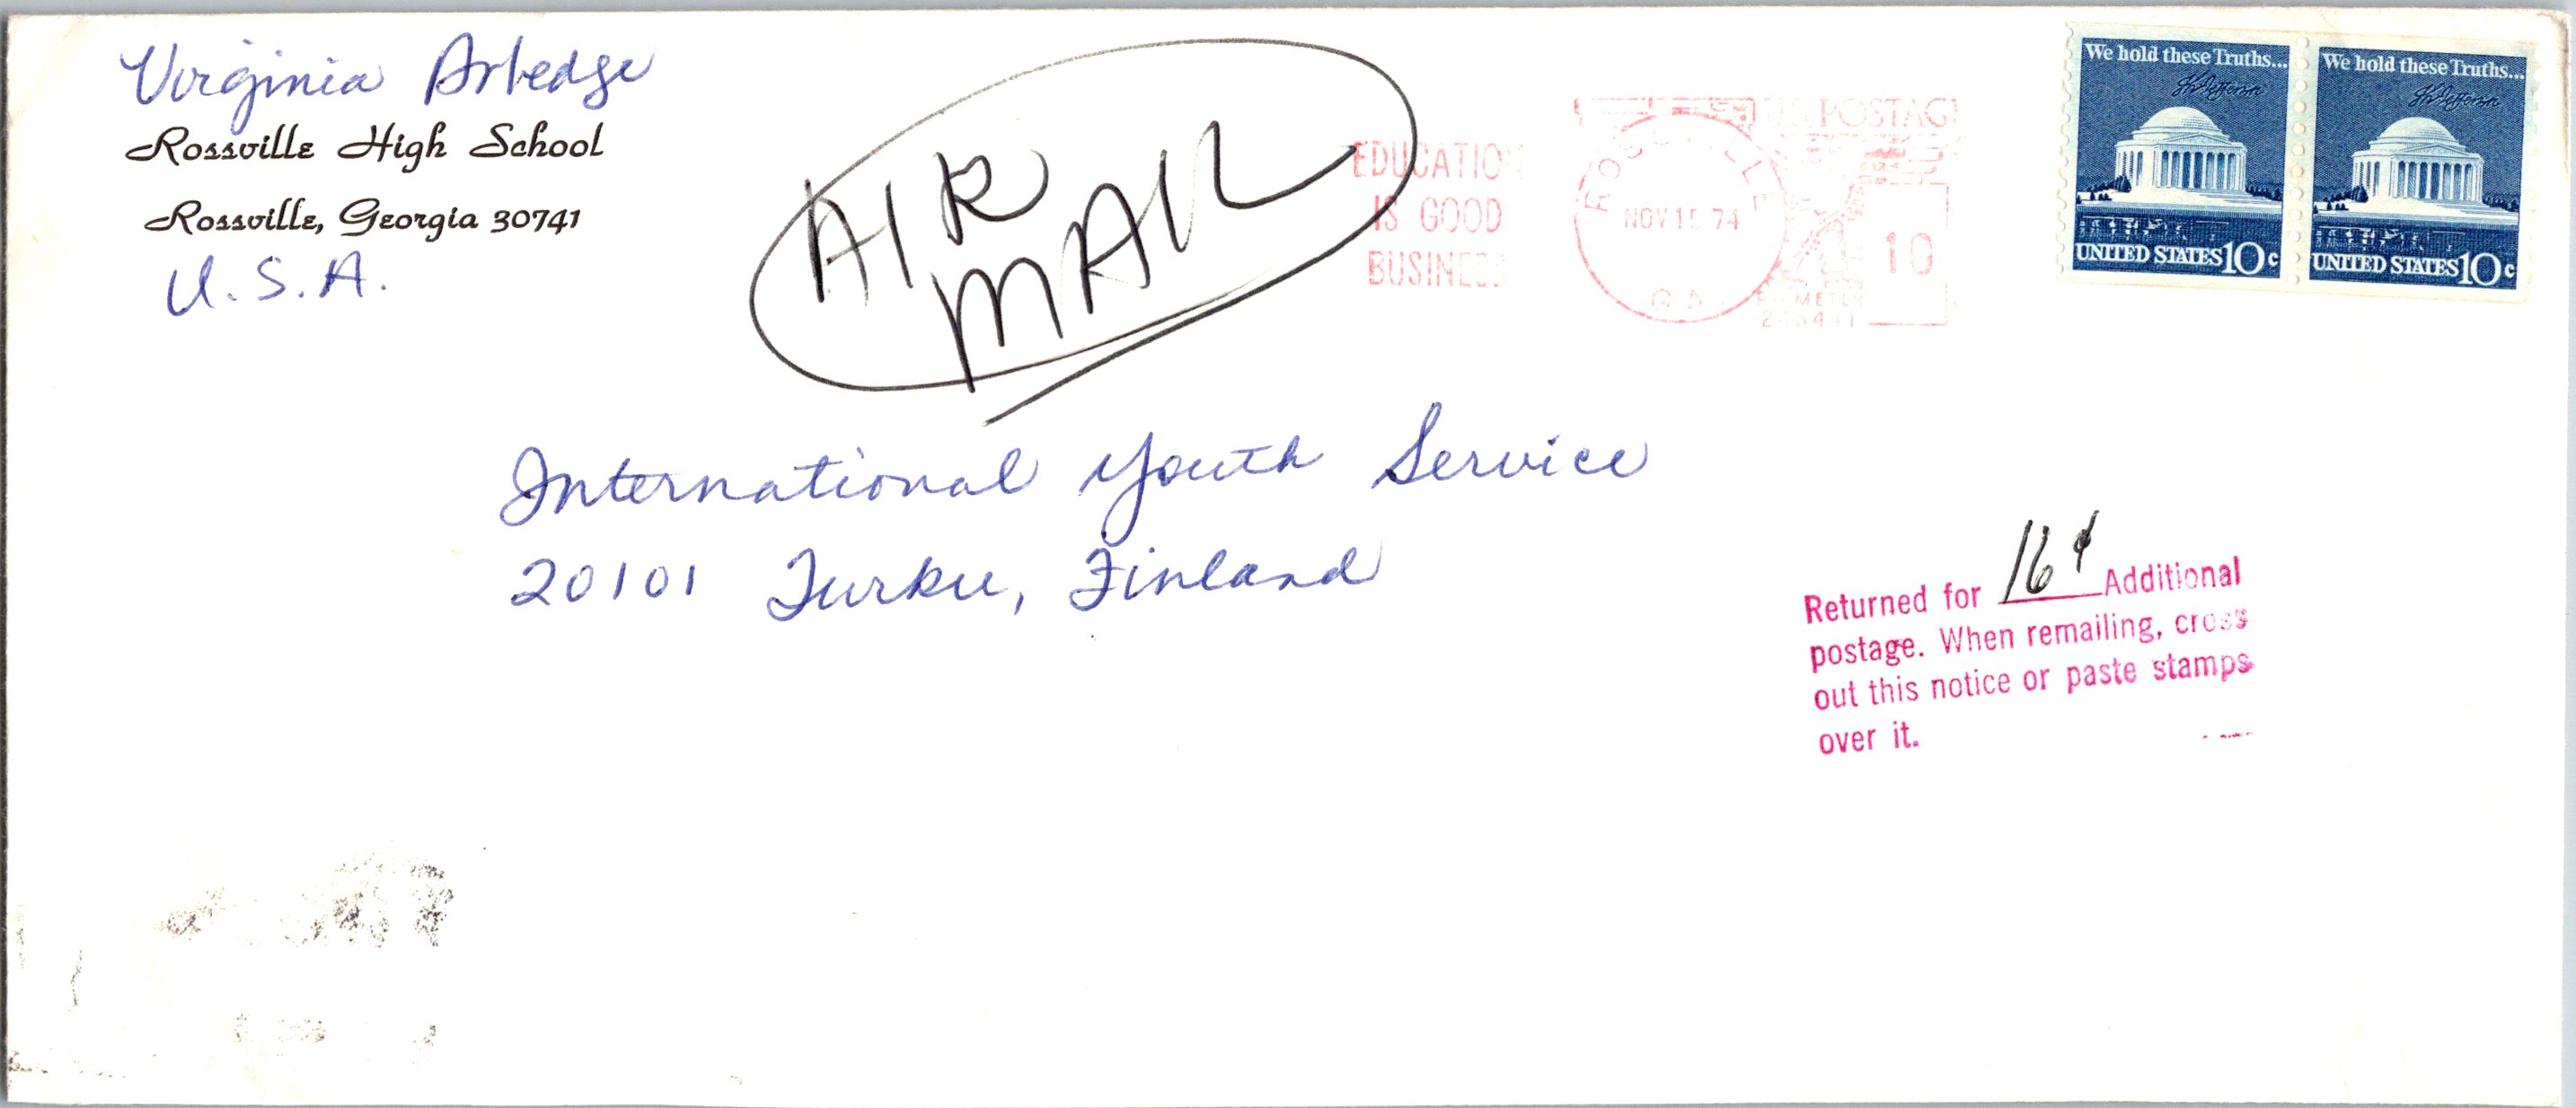 Virginia Arledge
Rossville High School
Rossville, Georgia 30741
U.S.A.
AIR
MAIL
EDUCATION
IS GOOD
BUSINESS
U.S. POSTAGE
ROSSVILLE
NOV 15 74
GA
10
We hold these Truths...
UNITED STATES 10c
We hold these Truths...
UNITED STATES 10c
International Youth Service
20101 Turku, Finland
Returned for 16¢ Additional
postage. When remailing, cross
out this notice or paste stamps
over it.